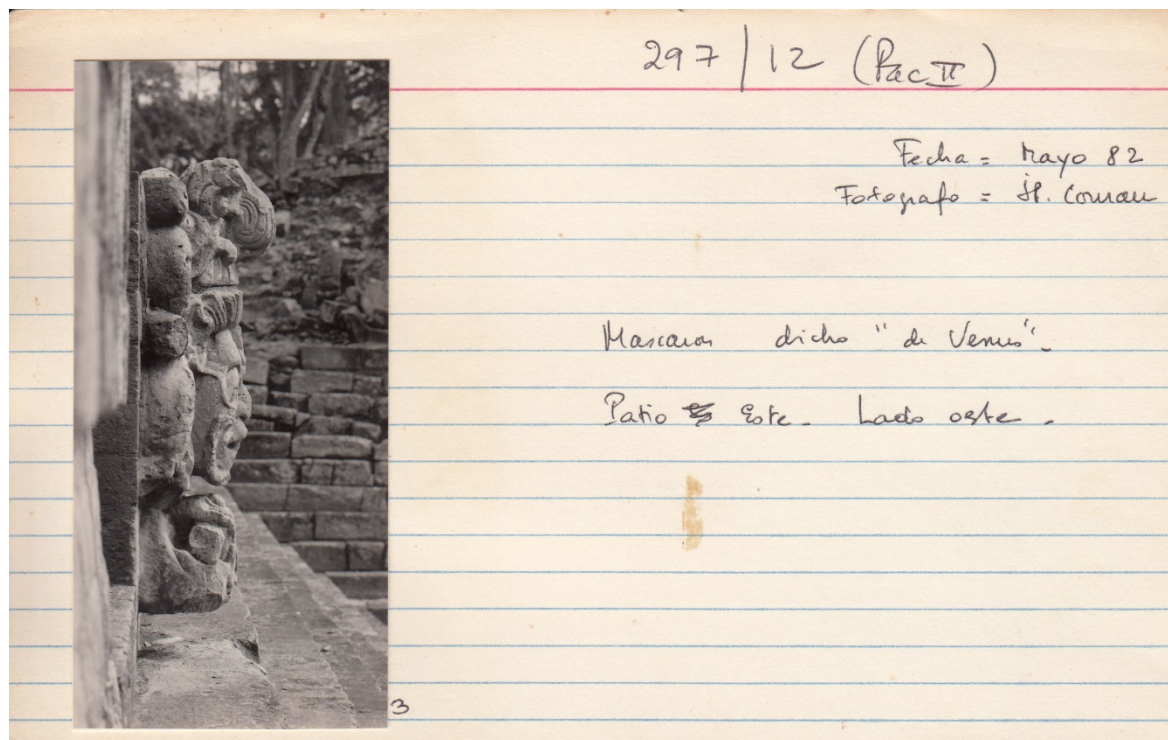 297/12 (Pac II)
Fecha = Mayo 82
Fotografo = H. Comau
Mascaron dicho "de Venus".
Patio Este. Lado oeste.
3